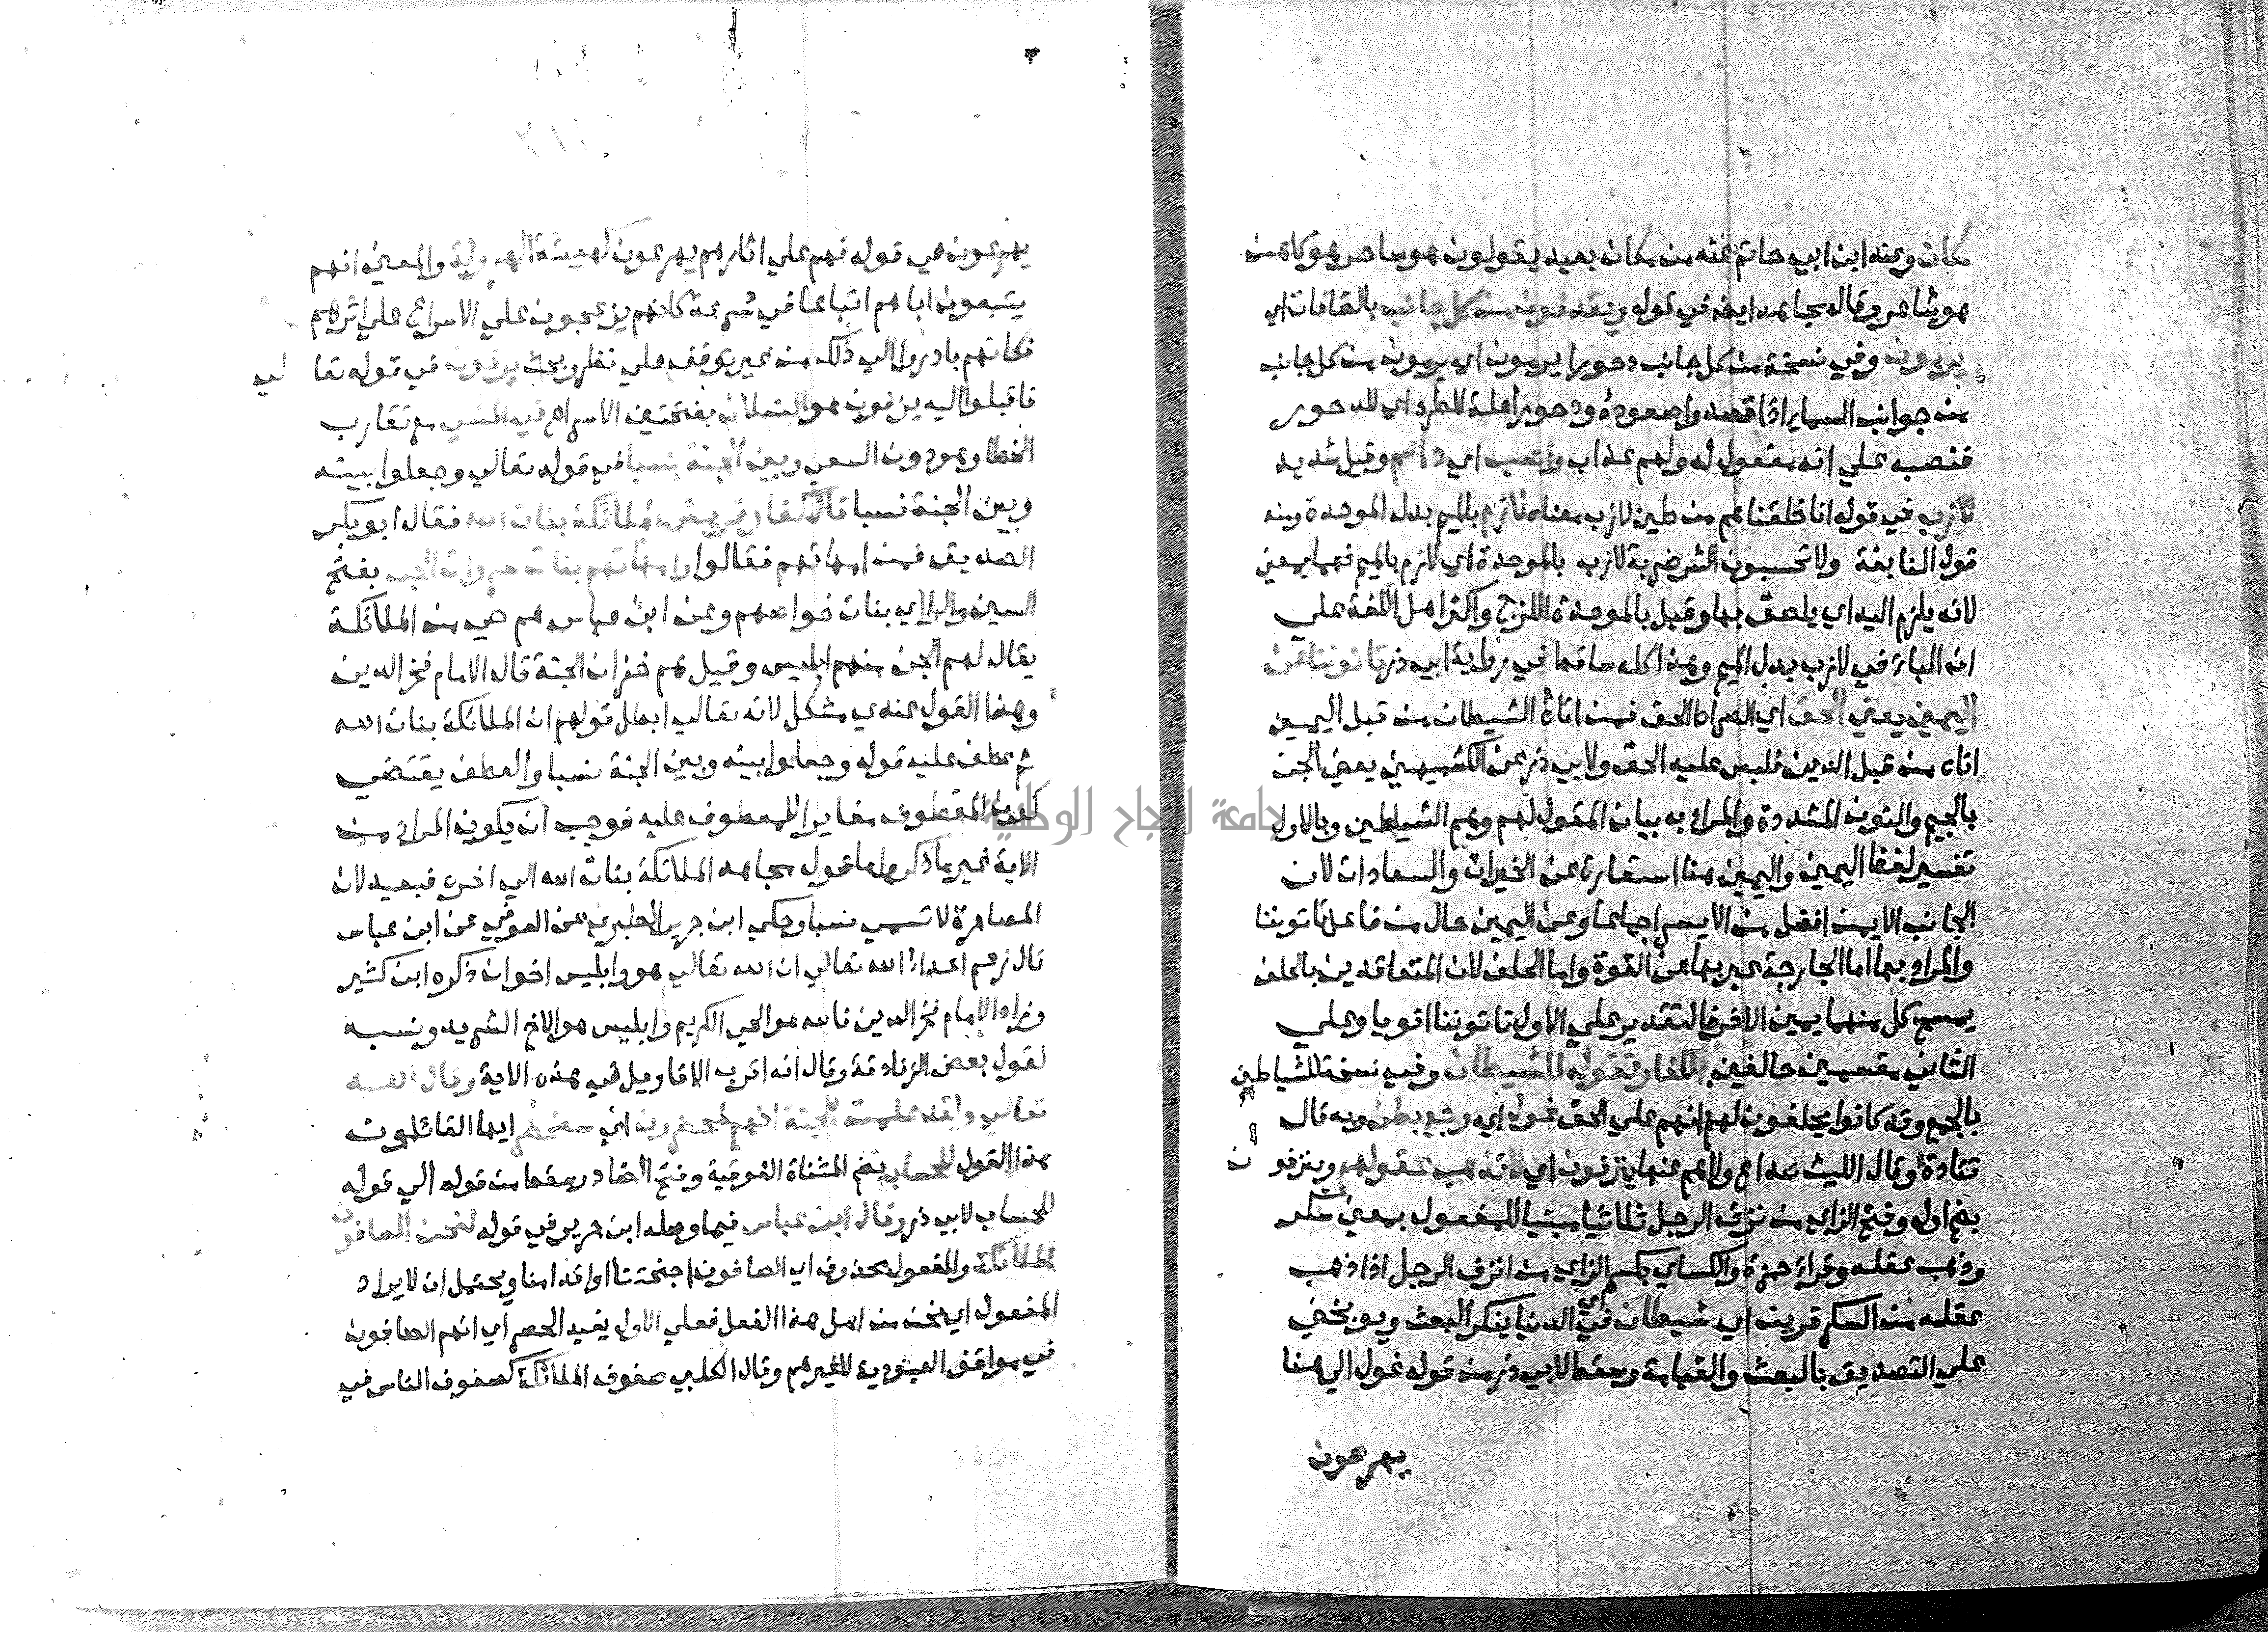 مكان وعند ابن ابي حاتم عنه من مكان بعيد يقولون هو ساحر هو كاهن
هو شاعر وقال مجاهد ايضا في قوله ويقذفون من كل جانب بالصافات اي
يرمون وفي نسخة من كل جانب دحورا يرمون اي يرمون من كل جانب
من جوانب السما اذا قصدوا صعوده ودحورا علة للطرد اي للدحور
فنصبه علي انه مفعول له ولهم عذاب واصب اي دائم وقيل شديد
لازب في قوله انا خلقناهم من طين لازب معناه لازم بالميم بدل الموحدة ومنه
قول النابغة ولا تحسبون الشر ضربة لازب بالموحدة اي لازم بالميم فهما بمعني
لانه يلزم اليد اي يلصق بها وقيل بالموحدة اللزج واكثر اهل اللغة علي
ان الباء في لازب بدل الميم وهذا كله ساقط في رواية ابي ذر تاتوننا عن
اليمين يعني الحق اي الصراط الحق فمن اتاه الشيطان من قبل اليمين
اتاه من قبل الدين فلبس عليه الحق ولابي ذر عن الكشميهني يعني الجن
بالجيم والنون المشددة والمراد به بيان المقول لهم وهم الشياطين وبالاول
تفسير لفظ اليمين واليمين هنا استعارة عن الخيرات والسعادات لان
الجانب الايمن افضل من الايسر اجماعا وعن اليمين حال من فاعل تاتوننا
والمراد بها اما الجارحة عبر بها عن القوة واما الحلف لان المتعاقدين بالحلف
يمسح كل منهما يمين الاخر فالتقدير علي الاول تاتوننا اقويا وعلي
الثاني مقسمين حالفين الكفار تقوله للشيطان وفي نسخة للشياطين
بالجمع وقد كانوا يحلفون لهم انهم علي الحق غول اي وجع بطن وبه قال
قتادة وقال الليث صداع ولا هم عنها ينزفون اي لا تذهب عقولهم وينزفون
بضم اوله وفتح الزاي من نزف الرجل ثلاثيا مبنيا للمفعول بمعني سكر
وذهب عقله وقراء حمزة والكساي بكسر الزاي من انزف الرجل اذا ذهب
عقله من السكر قرين اي شيطان اي في الدنيا ينكر البعث ويوبخني
علي التصديق بالبعث والقيامة وسقط لابي ذر من قوله غول الي هنا
يهرعون
يهرعون في قوله فهم علي اثارهم يهرعون كهيئة الهرولة والمعني انهم
يتبعون اباهم اتباعا في سرعة كانهم يزعجون علي الاسراع علي اثرهم
فكانهم بادروا الي ذلك من غير توقف علي نظر وبحث يزفون في قوله تعالي
فاقبلوا اليه يزفون هو النسلان بفتحتين الاسراع في المشي مع تقارب
الخطا وهو دون السعي وبين الجنة نسبا في قوله تعالي وجعلوا بينه
وبين الجنة نسبا قال كفار قريش الملائكة بنات الله فقال ابو بكر
الصديق فمن امهاتهم فقالوا امهاتهم بنات سروات الجن بفتح
السين والراء اي بنات خواصهم وعن ابن عباس هم حي من الملائكة
يقال لهم الجن منهم ابليس وقيل هم خزان الجنة قال الامام فخر الدين
وهذا القول عندي مشكل لانه تعالي ابطل قولهم ان الملائكة بنات الله
ثم عطف عليه قوله وجعلوا بينه وبين الجنة نسبا والعطف يقتضي
كون المعطوف مغايرا للمعطوف عليه فوجب ان يكون المراد من
الاية غير ما ذكر واما قول مجاهد الملائكة بنات الله الي اخره فبعيد لان
المصاهرة لا تسمي نسبا وحكي ابن جرير الطبري عن العوفي عن ابن عباس
قال زعم اعداء الله تعالي ان الله تعالي هو وابليس اخوان ذكره ابن كثير
وزاد الامام فخر الدين فالله هو الحي الكريم وابليس هو الاخ الشرير ونسبه
لقول بعض الزنادقة وقال انه اقرب الاقاويل في هذه الاية وقال الله
تعالي ولقد علمت الجنة انهم لمحضرون اي ايها القائلون
هذا القول للحساب بضم المثناة الفوقية وفتح الضاد وسقط من قوله الي قوله
للحساب لابي ذر وقال ابن عباس فيما وصله ابن جرير في قوله لنحن الصافون
الملائكة والمفعول محذوف اي الصافون اجنحتنا او اقدامنا ويحتمل ان لا يراد
المفعول اي نحن من اهل هذا الفعل فعلي الاول يفيد الحصر اي انهم الصافون
في مواقف العبودية لا غيرهم وقال الكلبي صفوف الملائكة كصفوف الناس في
جامعة النجاح الوطنية